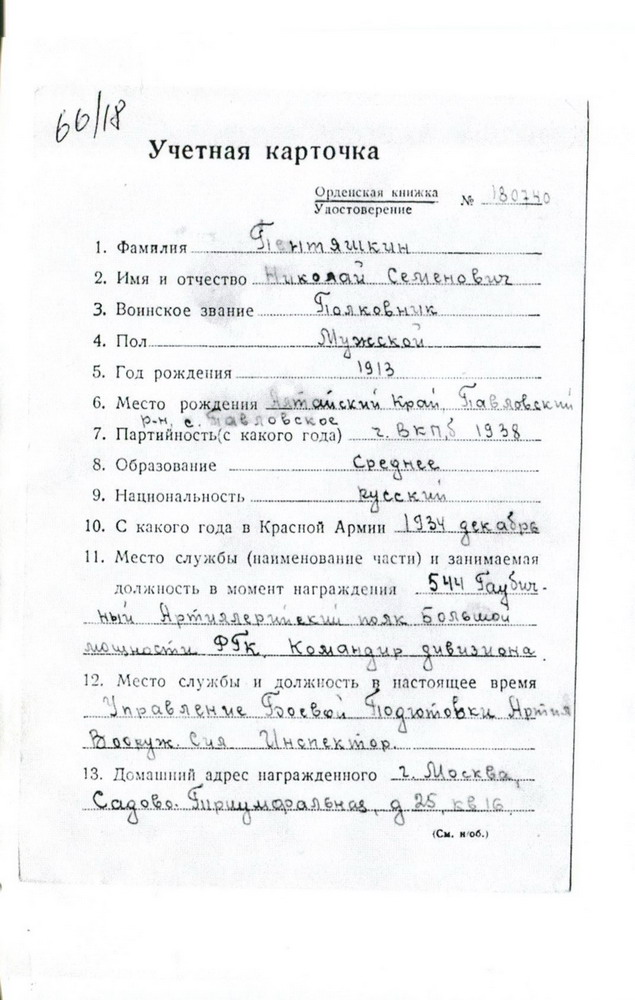 66/18
Учетная карточка
Орденская книжка
Удостоверение № 180740
1. Фамилия Пентяшкин
2. Имя и отчество Николай Семенович
3. Воинское звание Полковник
4. Пол Мужской
5. Год рождения 1913
6. Место рождения Алтайский Край, Павловский
р-н, с. Павловское
7. Партийность(с какого года) ч. ВКП,б 1938
8. Образование Среднее
9. Национальность русский
10. С какого года в Красной Армии 1934 декабрь
11. Место службы (наименование части) и занимаемая
должность в момент награждения 544 Гаубич-
ный Артиллерийский полк Большой
мощности РГК, Командир дивизиона.
12. Место службы и должность в настоящее время
Управление Боевой Подготовки Артил
Вооруж. Сил Инспектор.
13. Домашний адрес награжденного г. Москва,
Садово-Триумфальная, д 25, кв 16.
(См. н/об.)